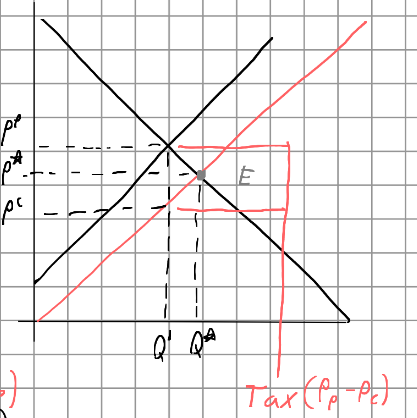 pᵖ
p*
pᶜ
E
Q' Q*
)
Tax (Pp - Pc)